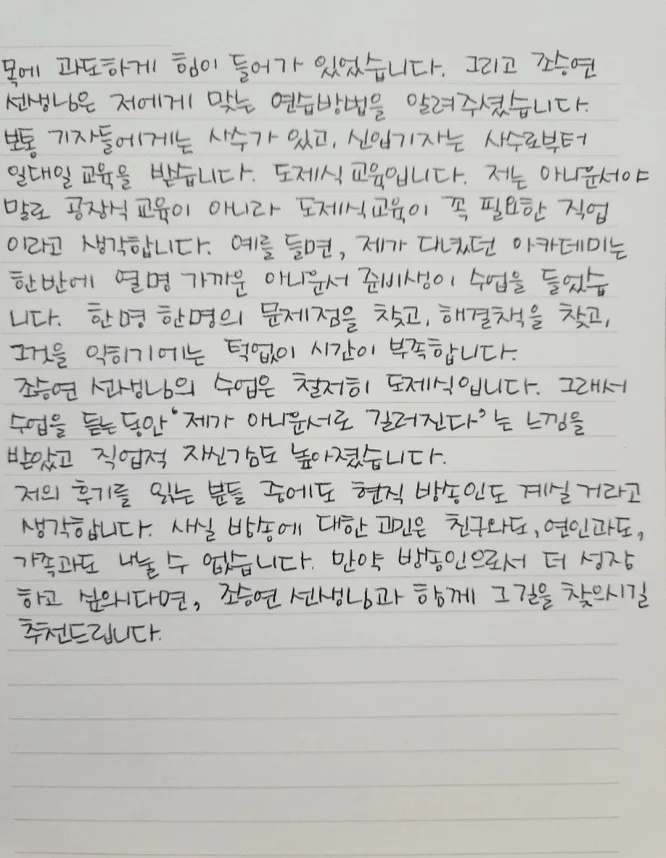 목에 과도하게 힘이 들어가 있었습니다. 그리고 조승연
선생님은 저에게 맞는 연습방법을 알려주셨습니다.
보통 기자들에게는 사수가 있고, 신입기자는 사수로부터
일대일 교육을 받습니다. 도제식 교육입니다. 저는 아나운서야
말로 공장식 교육이 아니라 도제식교육이 꼭 필요한 직업
이라고 생각합니다. 예를 들면, 제가 다녔던 아카데미는
한반에 열명 가까운 아나운서 준비생이 수업을 들었습
니다. 한명 한명의 문제점을 찾고, 해결책을 찾고,
그것을 익히기에는 턱없이 시간이 부족합니다.
조승연 선생님의 수업은 철저히 도제식입니다. 그래서
수업을 듣는동안 '제가 아나운서로 길러진다'는 느낌을
받았고 직업적 자신감도 높아졌습니다.
저의 후기를 읽는 분들 중에도 현직 방송인도 계실 거라고
생각합니다. 사실 방송에 대한 고민은 친구와도, 연인과도,
가족과도 나눌 수 없습니다. 만약 방송인으로서 더 성장
하고 싶으시다면, 조승연 선생님과 함께 그 길을 찾으시길
추천드립니다.